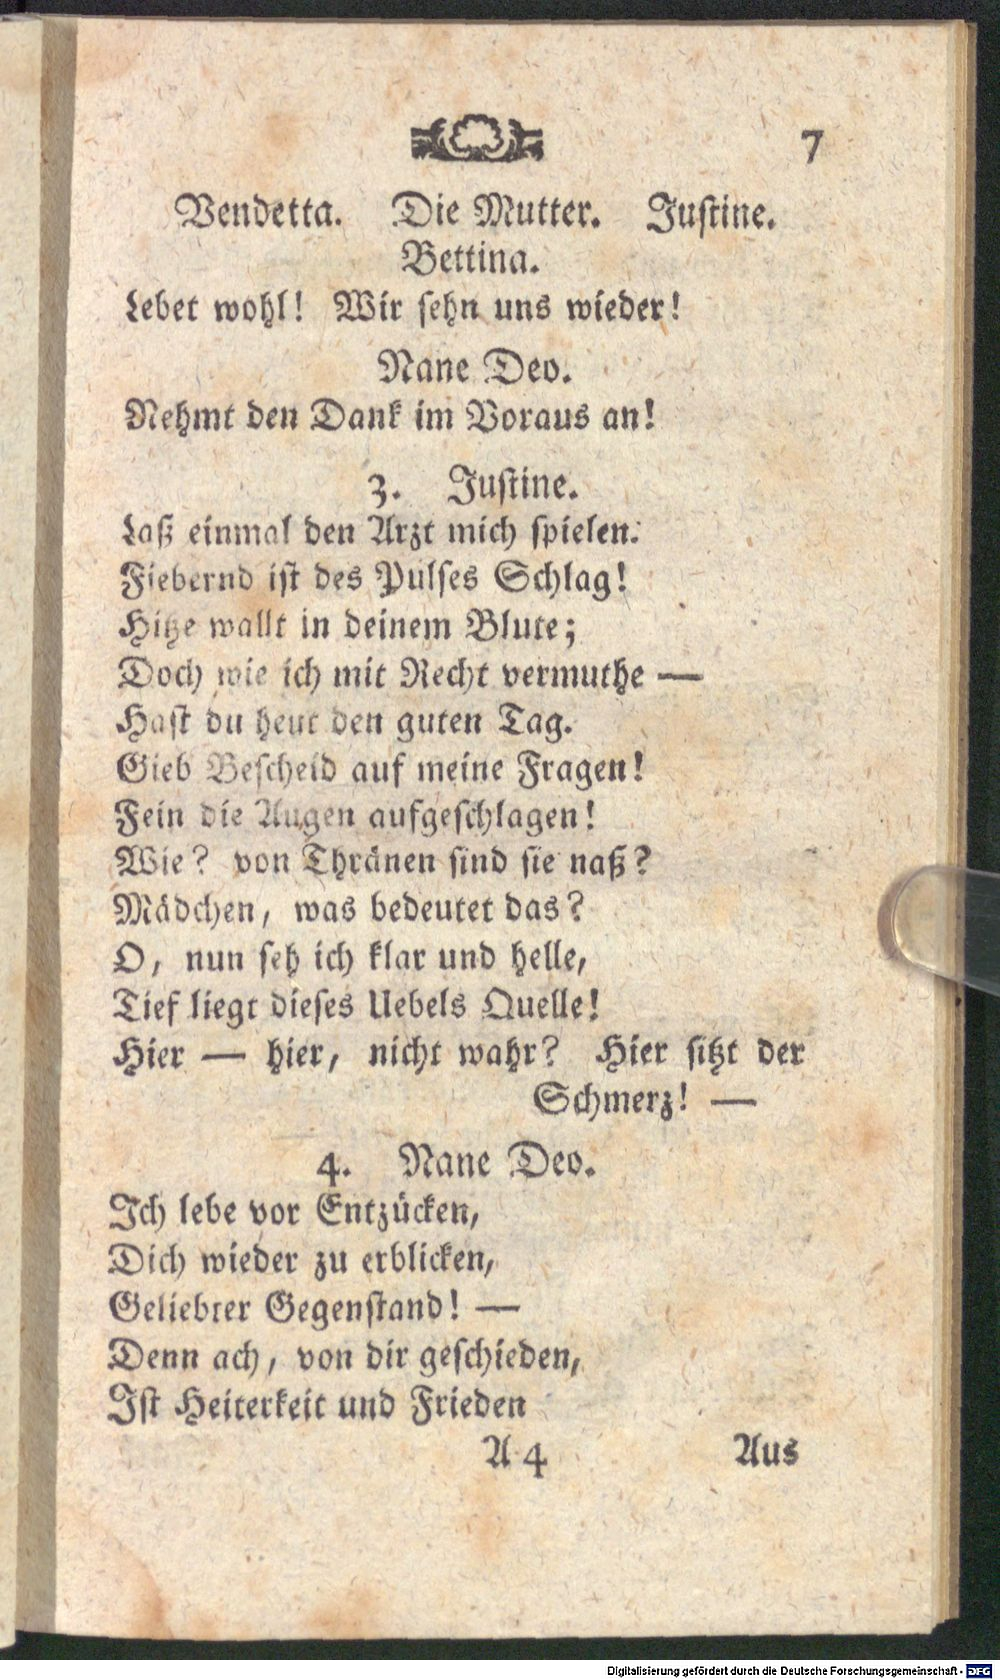 7
Vendetta. Die Mutter. Justine.
Bettina.
Lebet wohl! Wir sehn uns wieder!
Nane Deo.
Nehmt den Dank im Voraus an!
3. Justine.
Laß einmal den Arzt mich spielen:
Fiebernd ist des Pulses Schlag!
Hitze wallt in deinem Blute;
Doch wie ich mit Recht vermuthe —
Hast du heut den guten Tag.
Gieb Bescheid auf meine Fragen!
Fein die Augen aufgeschlagen!
Wie? von Thränen sind sie naß?
Mädchen, was bedeutet das?
O, nun seh ich klar und helle,
Tief liegt dieses Uebels Quelle!
Hier — hier, nicht wahr? Hier sitzt der
Schmerz! —
4. Nane Deo.
Ich lebe vor Entzücken,
Dich wieder zu erblicken,
Geliebter Gegenstand! —
Denn ach, von dir geschieden,
Ist Heiterkeit und Frieden
A 4 Aus
Digitalisierung gefördert durch die Deutsche Forschungsgemeinschaft - DFG